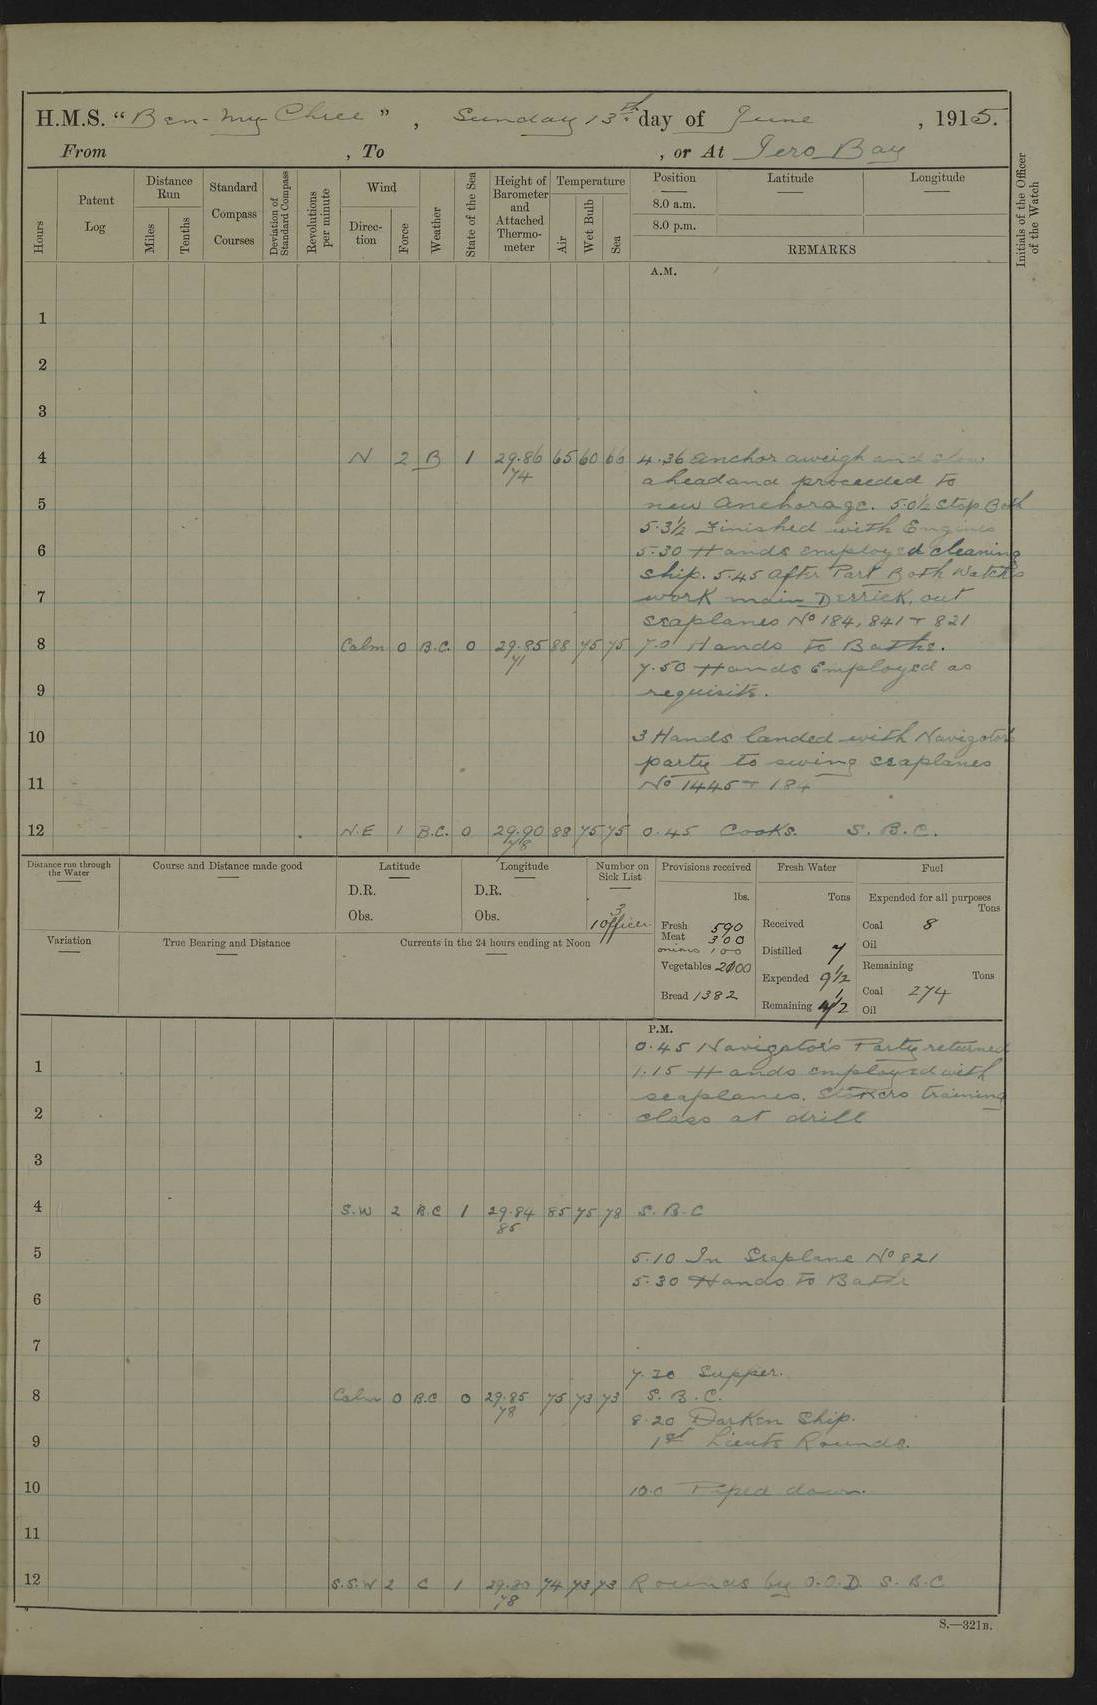 H.M.S. "Ben-my-Chree", Sunday 13th. day of June, 1915.
From , To , or At Iero Bay
Hours
Patent Log
Distance Run
Miles
Tenths
Standard Compass Courses
Deviation of Standard Compass
Revolutions per minute
Wind
Direction
Force
Weather
State of the Sea
Height of Barometer and Attached Thermometer
Temperature
Air
Wet Bulb
Sea
Position
8.0 a.m.
8.0 p.m.
Latitude
Longitude
REMARKS
Initials of the Officer of the Watch
A.M.
1
2
3
4 N 2 B 1 29.86 65 60 66 4.36 Anchor aweigh and slow
74 ahead and proceeded to
5 new anchorage. 5.0½ Stop Both
5.3½ Finished with Engines
6 5.30 Hands employed cleaning
ship. 5.45 After Part Both Watches
7 work main Derrick, out
seaplanes No 184, 841 + 821
8 Calm 0 B.C. 0 29.85 88 75 75 7.0 Hands to Bathe.
71 7.50 Hands Employed as
9 requisite.
10 3 Hands landed with Navigator's
party to swing seaplanes
11 No 1445 + 184
12 N.E 1 B.C. 0 29.90 88 75 75 0.45 Cooks. S.B.C.
78
Distance run through the Water
Course and Distance made good
Latitude
D.R.
Obs.
Longitude
D.R.
Obs.
Number on Sick List
3
1 Officer
Provisions received
lbs.
Fresh Meat 590
300
onions 100
Vegetables 2100
Bread 1382
Fresh Water
Tons
Received
Distilled 7
Expended 9½
Remaining
Fuel
Expended for all purposes
Tons
Coal 8
Oil
Remaining
Tons
Coal 274
Oil
Variation
True Bearing and Distance
Currents in the 24 hours ending at Noon
P.M.
0.45 Navigator's Party returned
1 1.15 Hands employed with
seaplanes. Stokers training
2 class at drill
3
4 S.W 2 B.C 1 29.84 85 75 78 S.B.C
85
5 5.10 In Seaplane No 821
5.30 Hands to Bathe
6
7
7.20 Supper.
8 Calm 0 B.C 0 29.85 75 73 73 S.B.C.
78 8.20 Darken Ship.
9 1st Lieuts Rounds.
10 10.0 Piped down.
11
12 S.S.W 2 C 1 29.80 74 73 73 Rounds by O.O.D. S.B.C
78
S.—321B.